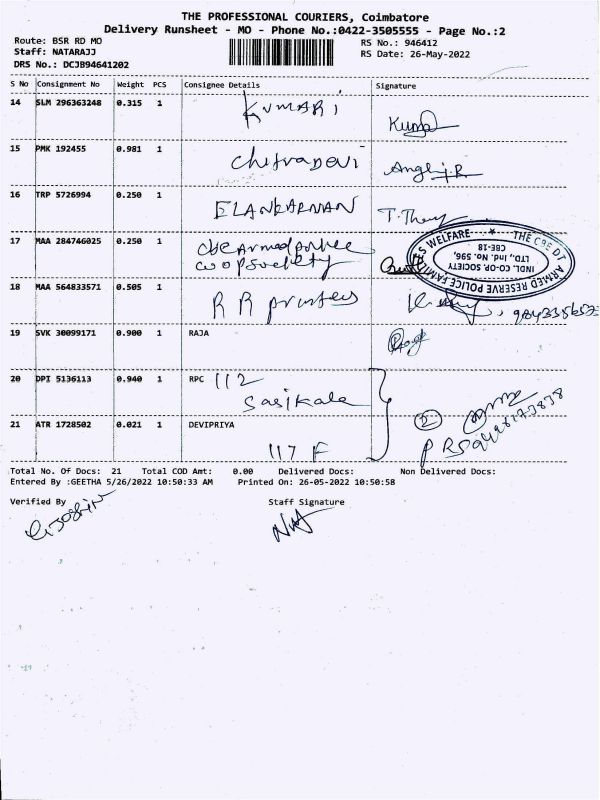 THE PROFESSIONAL COURIERS, Coimbatore
Delivery Runsheet - MO - Phone No.:0422-3505555 - Page No.:2
Route: BSR RD MO RS No.: 946412
Staff: NATARAJJ RS Date: 26-May-2022
DRS No.: DCJB94641202
S No Consignment No Weight PCS Consignee Details Signature
14 SLM 296363248 0.315 1 KUMARI
15 PMK 192455 0.981 1 ChitraDevi
16 TRP 5726994 0.250 1 ELANKARNAN
17 MAA 284746025 0.250 1 CBE Armed police
co op society
THE CBE DT ARMED RESERVE POLICE FAMILIES WELFARE
INDL. CO-OP. SOCIETY
LTD., Ind. No. 596,
CBE-18
18 MAA 564833571 0.505 1 R R printers
19 SVK 30099171 0.900 1 RAJA
20 DPI 5136113 0.940 1 RPC 112
Sasikala
21 ATR 1728502 0.021 1 DEVIPRIYA
117 F
2
Total No. Of Docs: 21 Total COD Amt: 0.00 Delivered Docs: Non Delivered Docs:
Entered By :GEETHA 5/26/2022 10:50:33 AM Printed On: 26-05-2022 10:50:58
Verified By Staff Signature